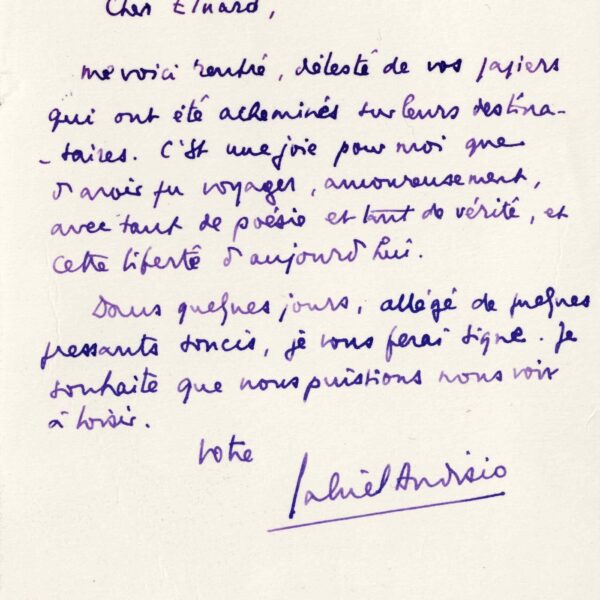 Cher Eluard,
me voici rentré, délesté de vos papiers
qui ont été acheminés sur leurs destina-
-taires. C'est une joie pour moi que
d'avoir pu voyager, amoureusement,
avec tant de poésie et tant de vérité, et
cette liberté d'aujourd'hui.
Dans quelques jours, allégé de quelques
pressants soucis, je vous ferai signe. Je
souhaite que nous puissions nous voir
à loisir.
Votre
Gabriel Audisio